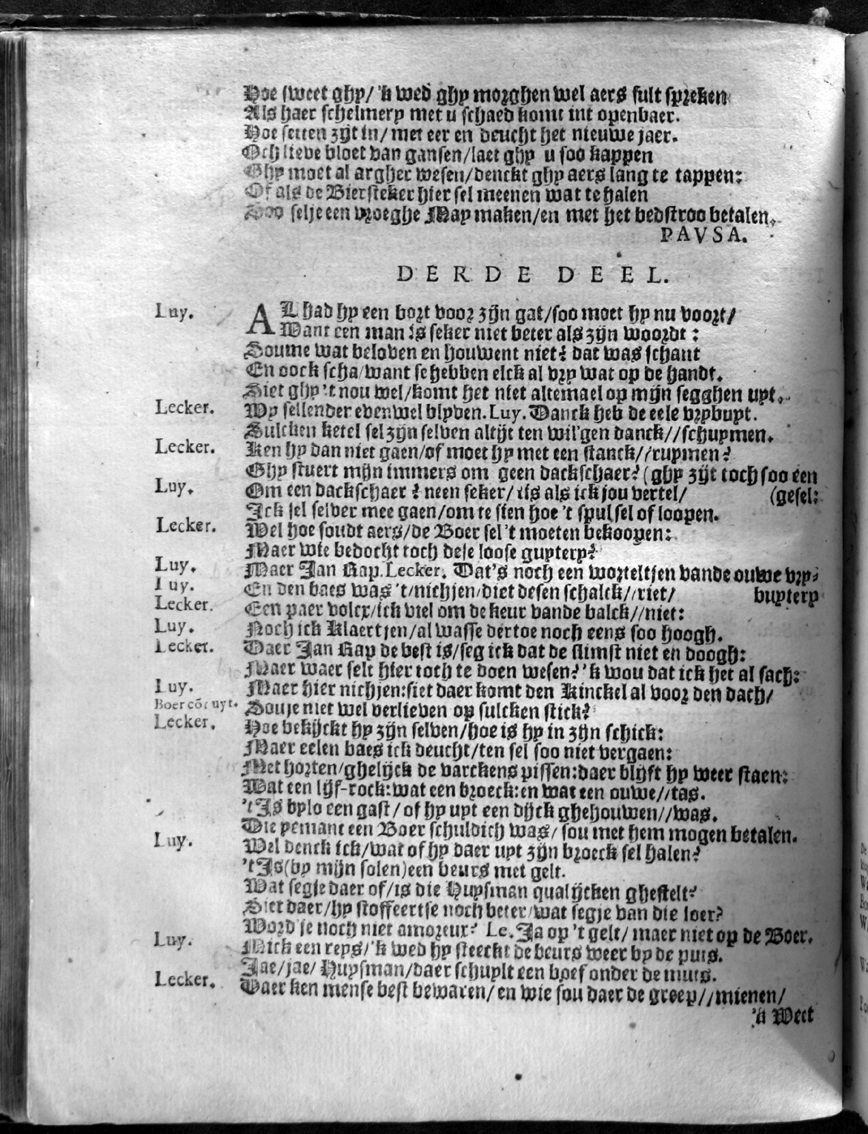 Hoe sweet ghy/ 'k wed ghy morghen wel aers sult spreken
Als haer schelmery met u schaed komt int openbaer.
Hoe setten zijt in/ met eer en deucht het nieuwe jaer.
Och lieve bloet van gansen/laet ghy u soo kappen
Ghy moet al argher wesen/denckt ghy aers lang te tappen:
Of als de Biersteker hier sel meenen wat te halen
Soo selje een vroeghe May maken/en met het bedstroo betalen.
PAVSA.
DERDE DEEL.
Luy. AL had hy een bort voor zijn gat/soo moet hy nu voort/
Want een man is seker niet beter als zijn woordt:
Soume wat beloven en houwent niet? dat was schant
En oock scha/want se hebben elck al vry wat op de handt.
Siet ghy 't nou wel/komt het niet altemael op mijn segghen uyt.
Lecker. Wy sellender evenwel blyven. Luy. Danck heb de eele vrybuyt.
Sulcken ketel sel zijn selven altijt ten wil'gen danck//schuymen.
Lecker. Ken hy dan niet gaen/of moet hy met een stanck//ruymen?
Ghy stuert mijn immers om geen dackschaer? (ghy zijt toch soo een
Luy. Om een dackschaer? neen seker/ tis als ick jou vertel/ (gesel:
Ick sel selver mee gaen/om te sien hoe 't spul sel of loopen.
Lecker. Wel hoe soudt aers/de Boer sel 't moeten bekoopen:
Maer wie bedocht toch dese loose guytery?
Luy. Maer Jan Kap. Lecker. Dat's noch een worteltjen vande ouwe vry-
Luy. En den baes was 't/nichjen/diet desen schalck//riet/ buytery
Lecker. Een paer volcx/ick viel om de keur vande balck//niet:
Luy. Noch ick Klaertjen/al wasse dertoe noch eens soo hoogh.
Lecker. Daer Jan Kap de best is/seg ick dat de slimst niet en doogh:
Maer waer selt hier toch te doen wesen? 'k wou dat ick het al sach:
Luy. Maer hier nichjen:siet daer komt den Kinckel al voor den dach/
Boer cõt uyt. Souje niet wel verlieven op sulcken stick?
Lecker. Hoe bekijckt hy zijn selven/hoe is hy in zijn schick:
Maer eelen baes ick deucht/ten sel soo niet vergaen:
Met horten/ghelijck de varckens pissen:daer blijft hy weer staen:
Wat een lijf-rock:wat een broeck:en wat een ouwe//tas.
't Is bylo een gast/ of hy uyt een dijck ghehouwen//was.
Die yemant een Boer schuldich was/ sou met hem mogen betalen.
Luy. Wel denck ick/wat of hy daer uyt zijn broeck sel halen?
't Is(by mijn solen)een beurs met gelt.
Wat segje daer of/is die Huysman qualijcken ghestelt?
Siet daer/hy stoffeertse noch beter/wat segje van die loer?
Word je noch niet amoreux? Le. Ja op 't gelt/ maer niet op de Boer.
Luy. Mick een reys/'k wed hy steeckt de beurs weer by de puis.
Jae/jae/ Huysman/daer schuylt een boef onder de muts.
Lecker. Daer ken mense best bewaren/ en wie sou daer de greep//mienen/
'k Weet